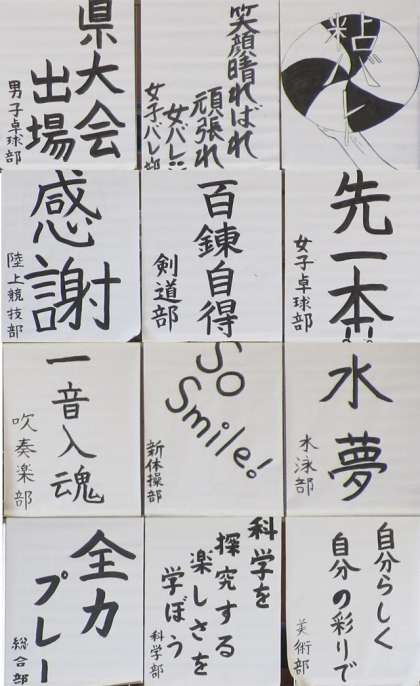 県大会
出場
男子卓球部
笑顔晴ればれ
頑張れ
女バレ
女子バレー部
粘バレー
感謝
陸上競技部
百錬自得
剣道部
先一本!!
女子卓球部
一音入魂
吹奏楽部
So
Smile!
新体操部
水夢
水泳部
全力
プレー
総合部
科学を
探究する
楽しさを
学ぼう
科学部
自分らしく
自分の彩りで
美術部